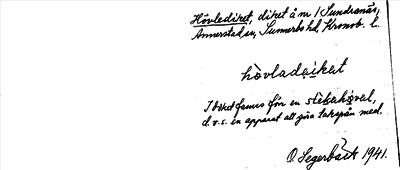 Hövlediket, diket å nr 1 Sundranäs,
Annerstad sn, Sunnerbo hd, Kronob. l.
hövladeiket
I diket fanns förr en stekahöval,
d.v.s. en apparat att göra takspån med.
O. Segerbäck 1941.